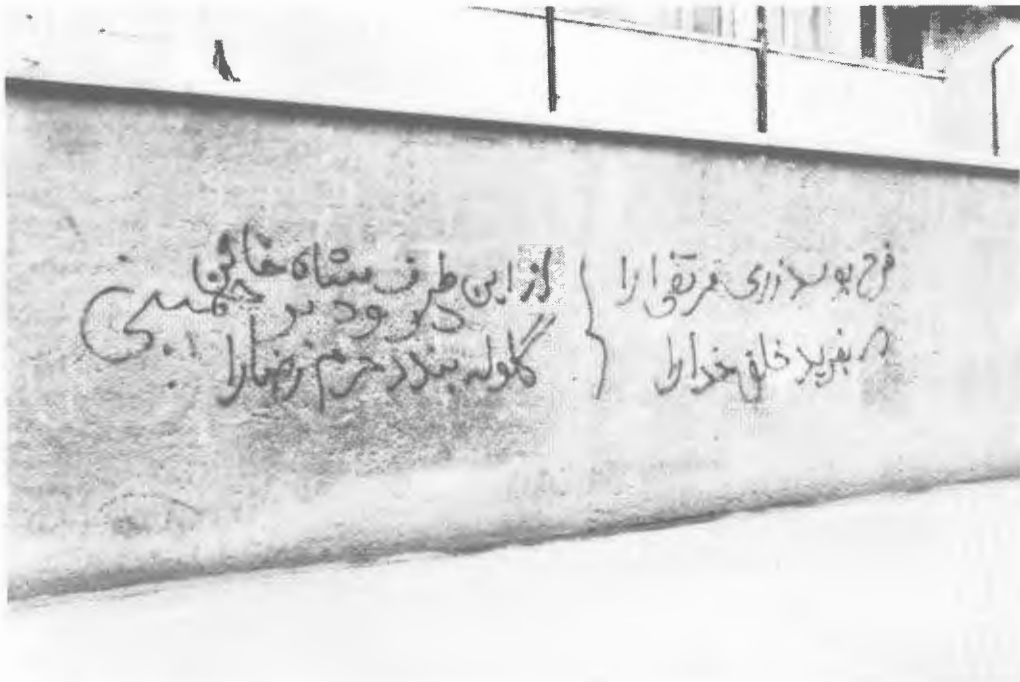 فرح بوسد زری مرتضی را
بفریبد خلق خدا را
از این طرف شاه خائن
درود بر خمینی
گلوله بندد حرم رضا را